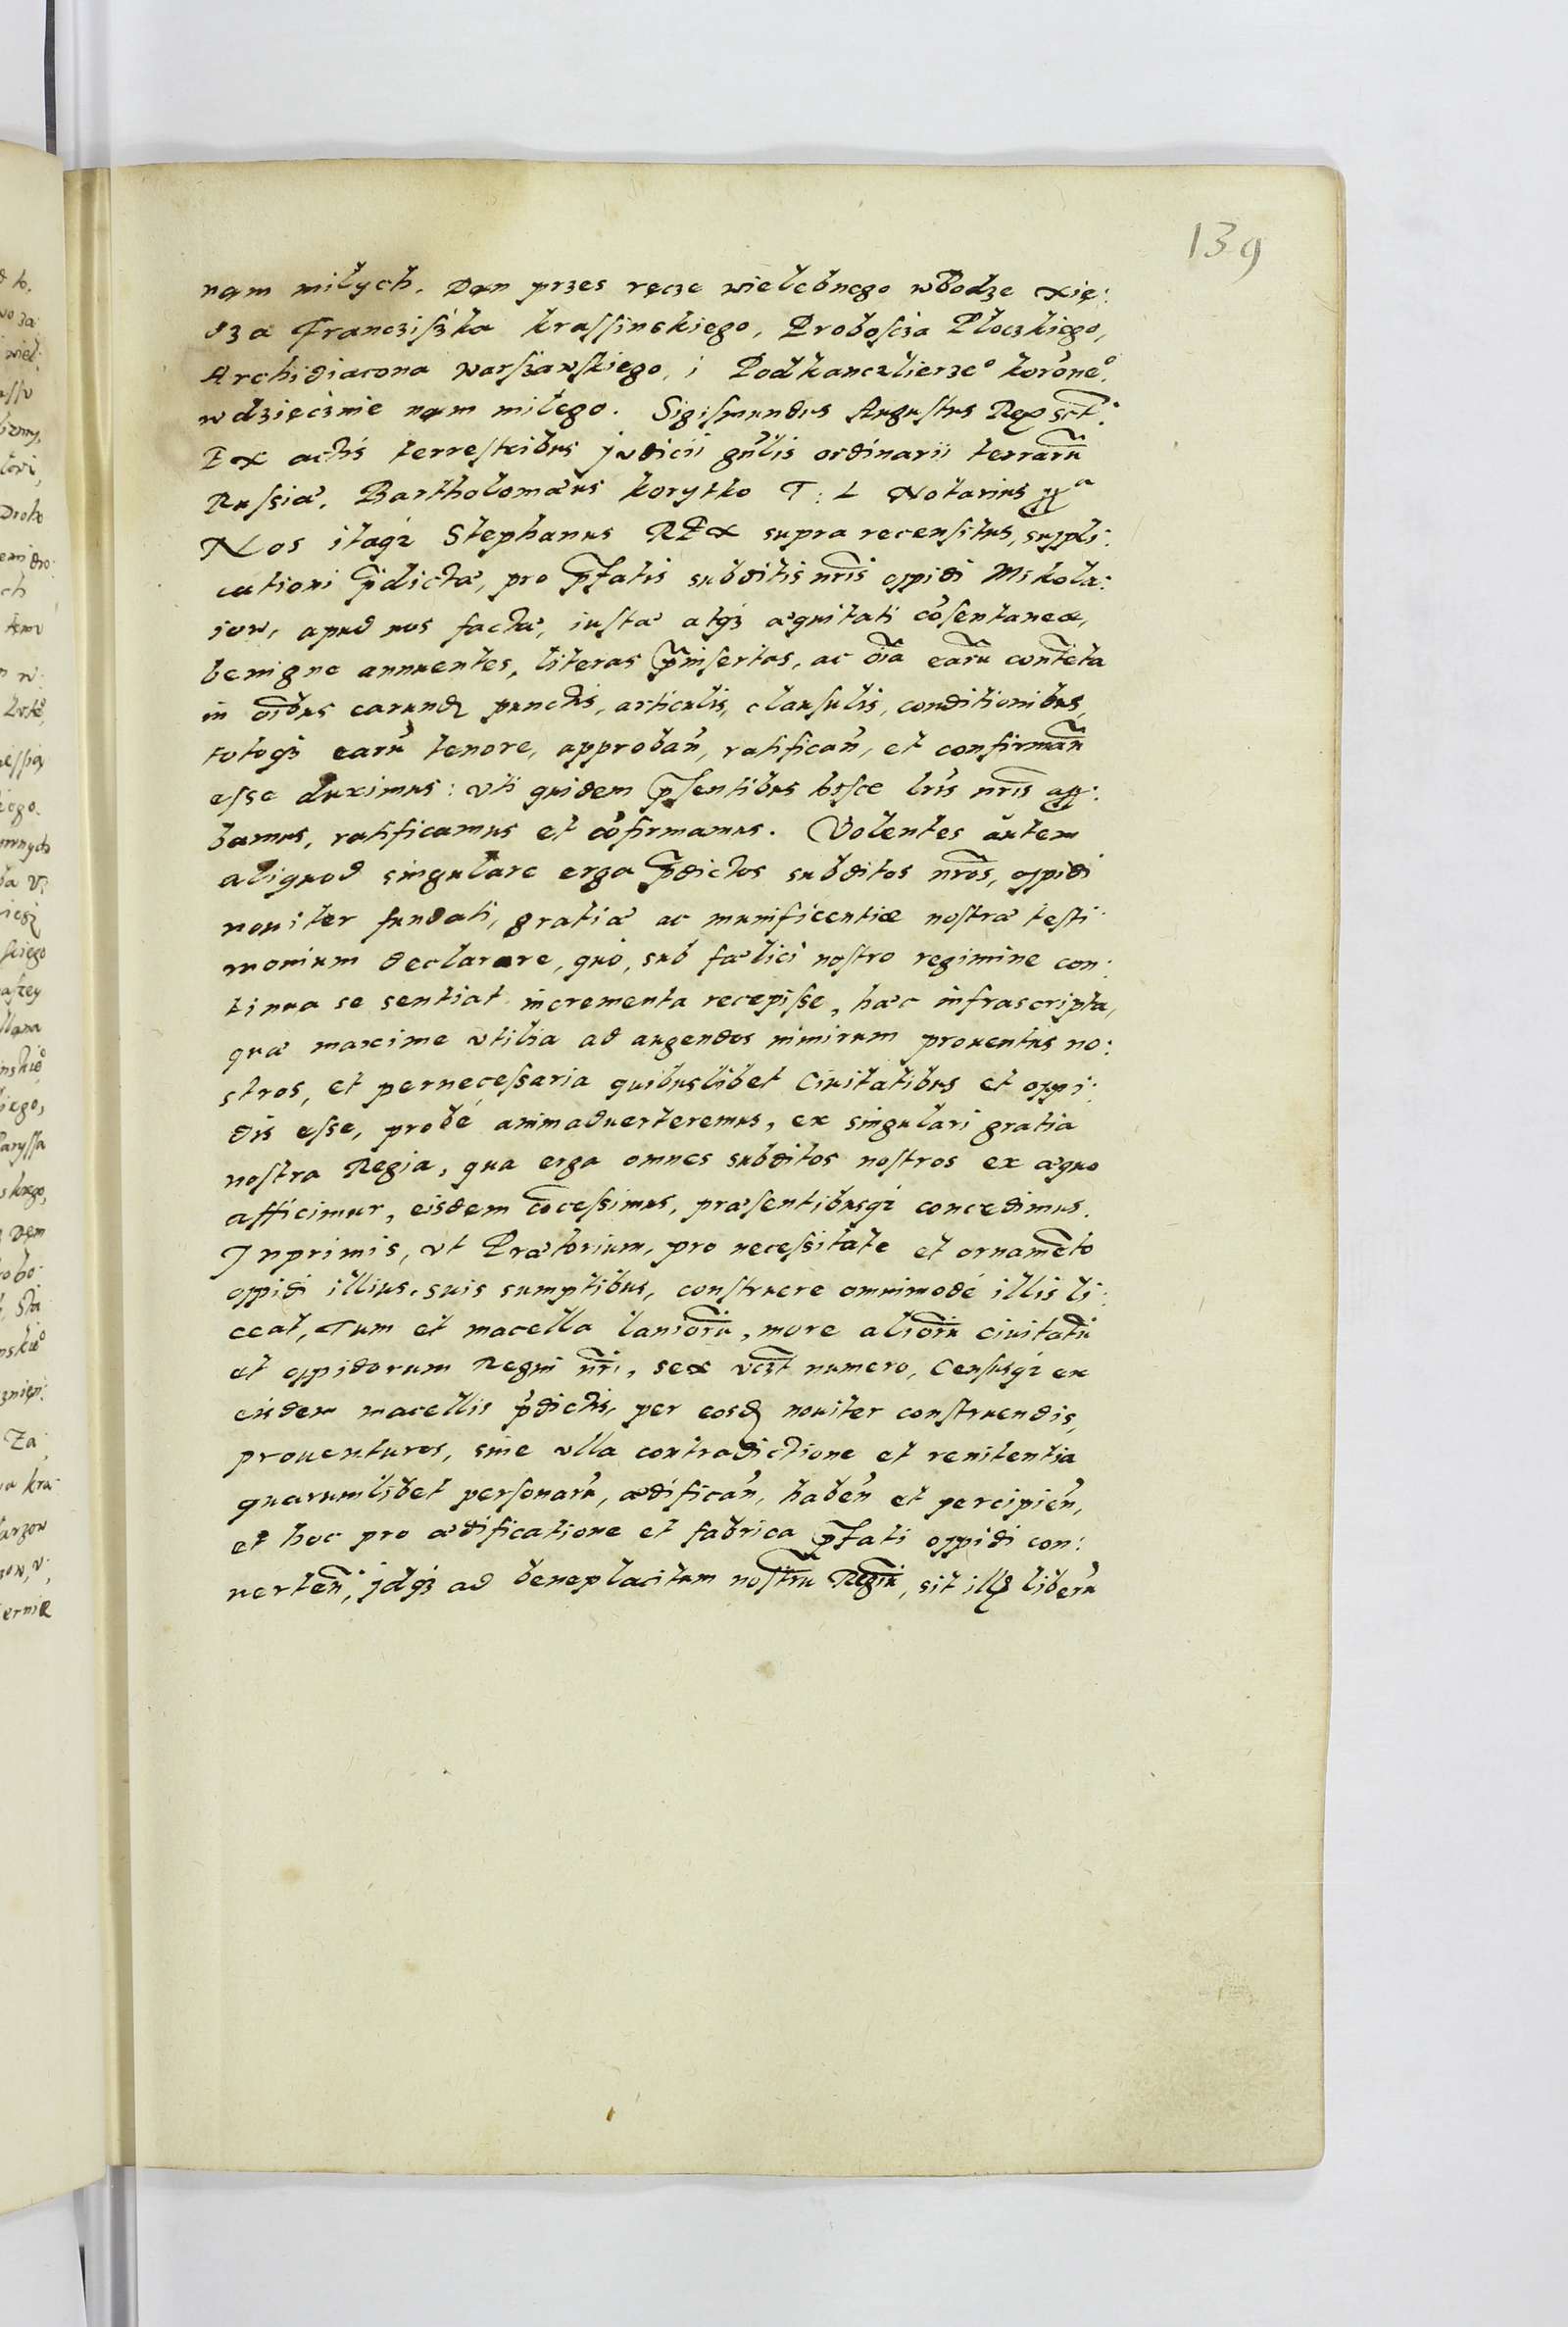 139
nam miłych. Dan przes ręcze wielebnego wbodze xię:
dza Francziszka Krassinskiego, Probosćza Płoczkiego,
Archidiacona warszawskiego, i Podkanczlierzeº koroneº.
wdzięcznie nam miłego. Sigismundus Augustus Rex sc̃t:
Ex actis terrestribus judicii gñlis ordinarii terrarũ
Russiæ. Bartholomæus Korytko T: L Notarius
Nos itaqꝫ Stephanus REx supra recensitus, suppli:
cationi p̃dictæ, pro p̃fatis subditis nr̃is oppidi Mikola:
iow, apud nos factæ, iustæ atqꝫ æquitati cõsentaneæ,
benigne annuentes, literas p̃insertas, ac oĩa earũ contẽta
in oĩbus earund punctis, articulis, clausulis, conditionibus,
totoqꝫ earũ tenore, approbañ, ratificañ, et confirmañ
esse duximus: vti quidem p̃sentibus hisce lr̃is nr̃is app:
bamus, ratificamus et cõfirmamus. Volentes autem
aliquod singulare erga p̃dictos subditos nr̃os, oppidi
nouiter fundati, gratiæ ac munificentiæ nostræ testi:
monium declarare, quò, sub fælici nostro regimine con:
tinua se sentiat incrementa recepisse, hæc infrascripta,
quæ maxime vtilia ad augendos nimirum prouentus no:
stros, et pernecessaria quibuslibet Ciuitatibus et oppi:
dis esse, probé animaduerteremus, ex singulari gratia
nostra Regia, qua erga omnes subditos nostros ex æquo
afficimur, eisdem cõcessimus, præsentibusqꝫ concedimus.
Inprimis, vt Prætorium, pro necessitate et ornamẽto
oppidi illius, suis sumptibus, construere omnimodé illis li:
ceat, Tum et macella lanioũ, more alioũ ciuitatũ
et oppidorum Regni nr̃i, sex numero, Censusqꝫ ex
eisdem macellis p̃dictis, per eosd nouiter construendis,
prouenturos, sine vlla contradictione et renitentia
quarumlibet personarũ, ædificañ, habeñ et percipieñ,
et hoc pro ædificatione et fabrica p̃fati oppidi con:
uerteñ, jdqꝫ ad beneplacitum nostrũ Regiũ, sit illis liberũ